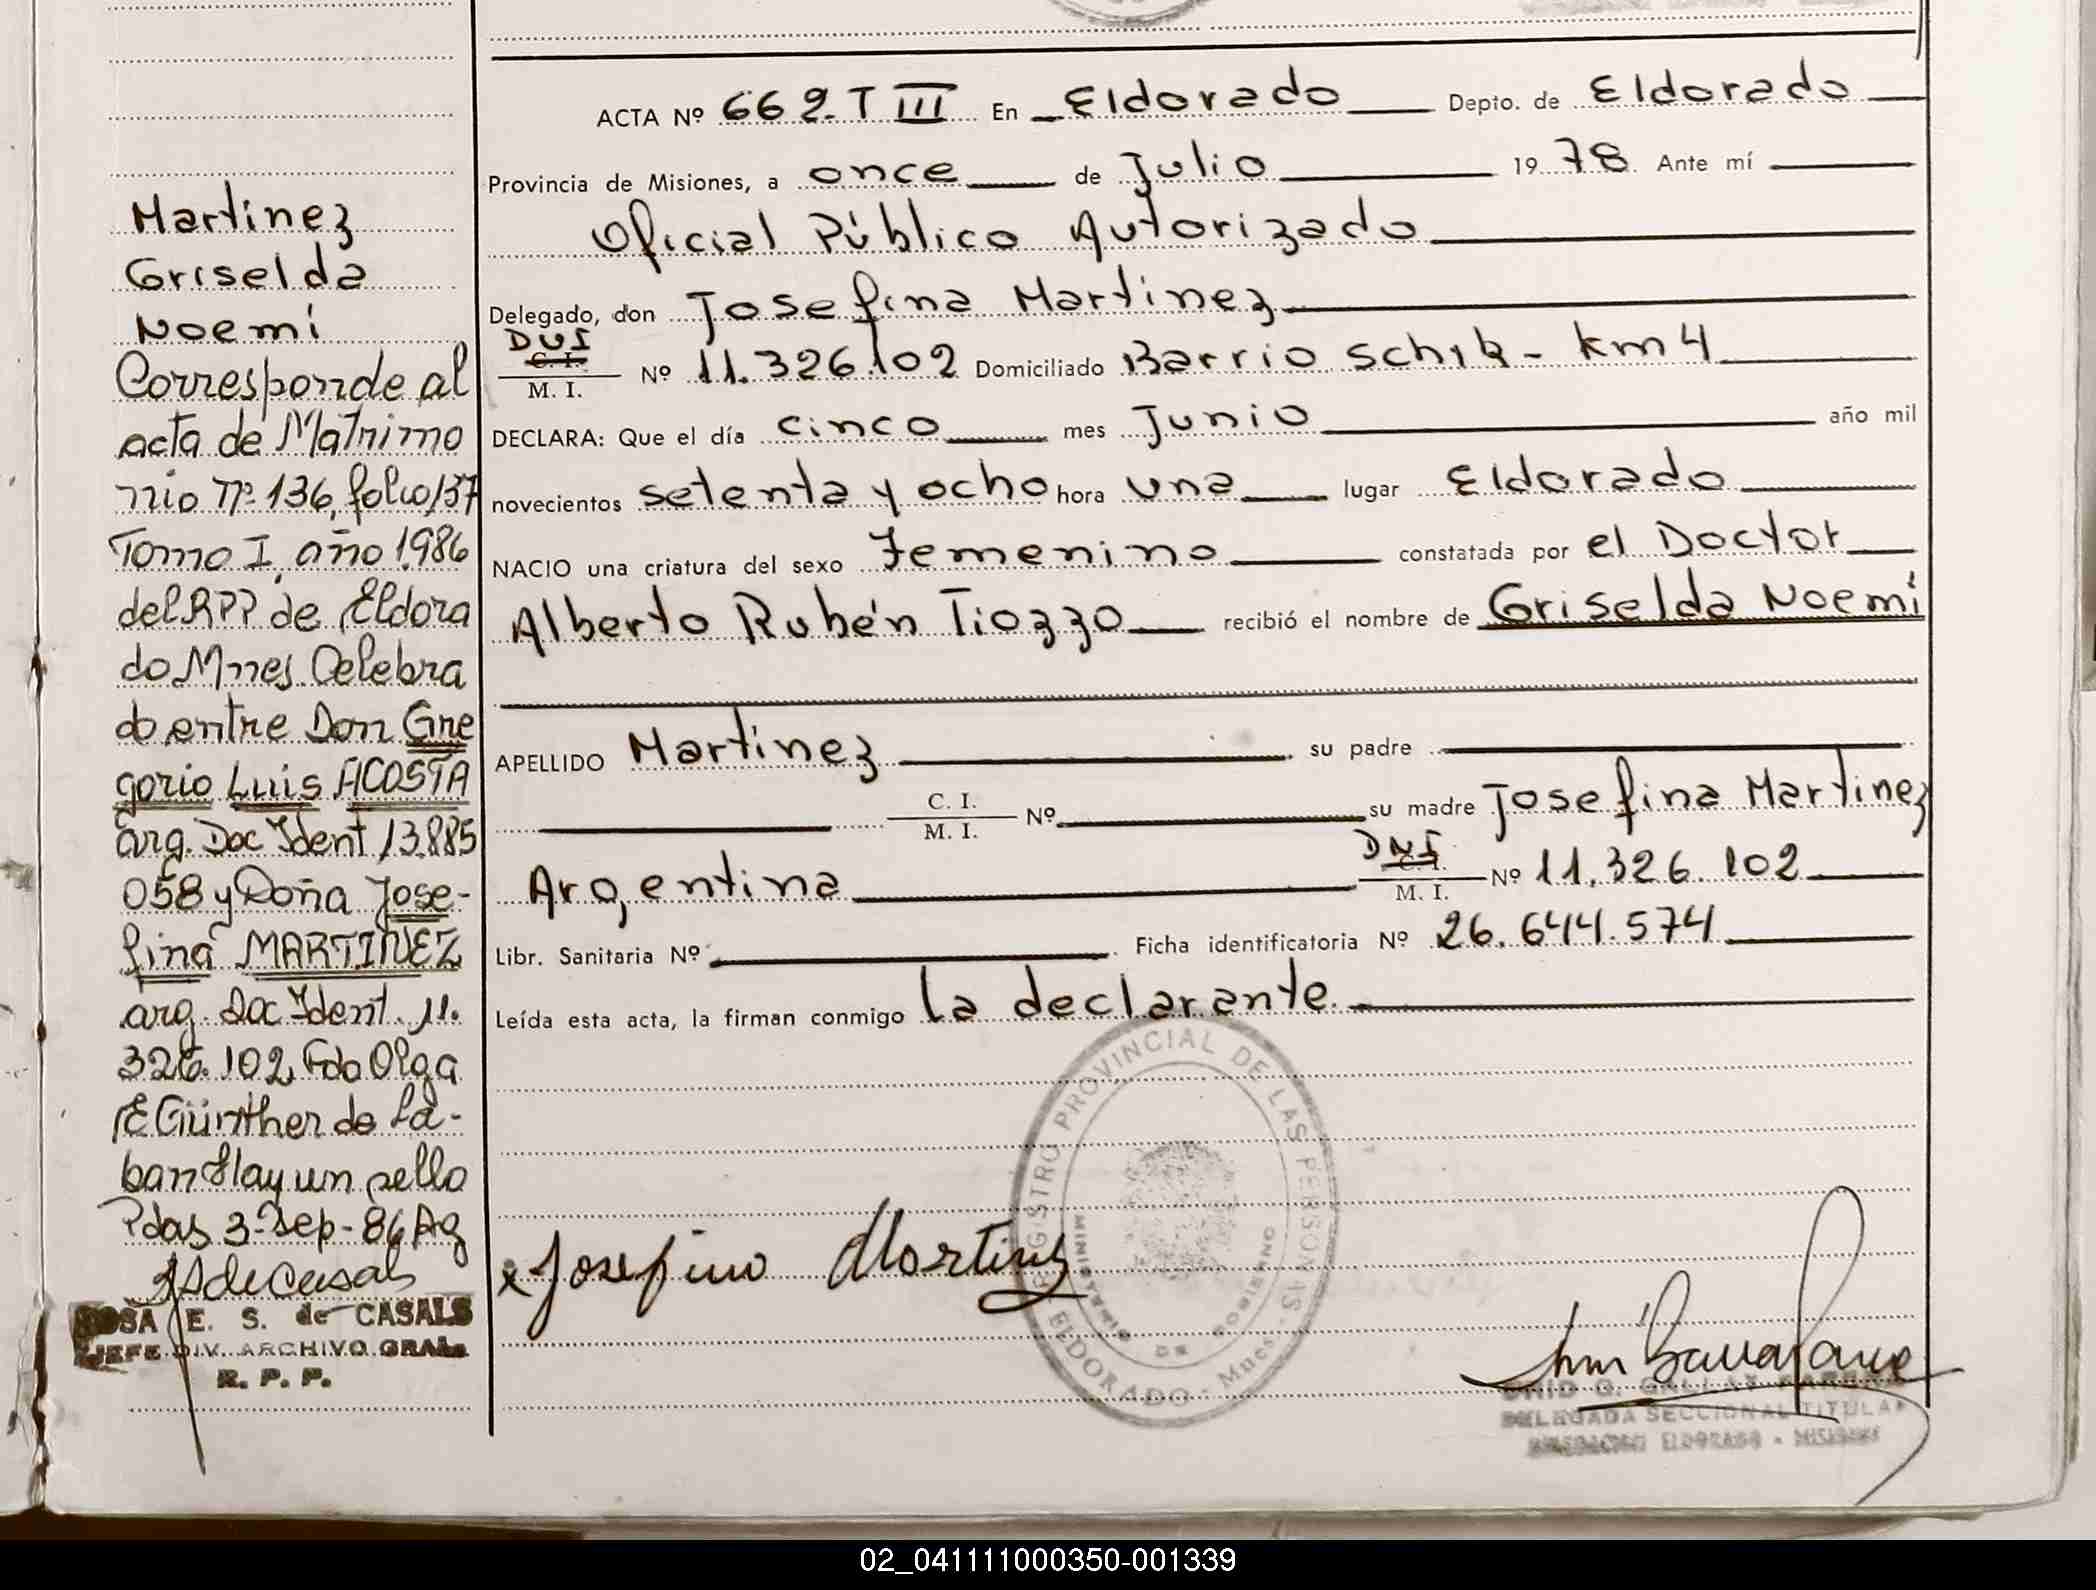 Martinez
Griselda
Noemí
Corresponde al
acta de Matrimo
nio Nº 136, folio 137
Tomo I, año 1986
del RPP de Eldora
do Mnes. Celebra
do entre Don Gre
gorio Luis ACOSTA
arg. Doc Ident 13.885
058 y Doña Jose-
fina MARTINEZ
arg. Doc Ident. 11.
326.102 Fdo Olga
E Günther de La-
ban Hay un sello
Pdas 3-Sep-86 Ag
ROSA E. S. de CASALS
JEFE DIV. ARCHIVO GRAL.
R. P. P.
ACTA Nº 662-T III En Eldorado Depto. de Eldorado
Provincia de Misiones, a once de Julio 1978 Ante mí
Oficial Público Autorizado
Delegado, don Josefina Martinez
DNI
C. I.
M. I. Nº 11.326.102 Domiciliado Barrio Schik - Km 4
DECLARA: Que el día cinco mes Junio año mil
novecientos setenta y ocho hora una lugar Eldorado
NACIO una criatura del sexo Femenino constatada por el Doctor
Alberto Rubén Tiozzo recibió el nombre de Griselda Noemí
APELLIDO Martinez su padre
C. I.
M. I. Nº su madre Josefina Martinez
Argentina DNI C. I. M. I. Nº 11.326.102
Libr. Sanitaria Nº Ficha identificatoria Nº 26.644.574
Leída esta acta, la firman conmigo la declarante.
REGISTRO PROVINCIAL DE LAS PERSONAS
MINISTERIO DE GOBIERNO
ELDORADO - Mnes.
x Josefina Martinez
DELEGADA SECCIONAL TITULAR
ELDORADO - MISIONES
02_041111000350-001339